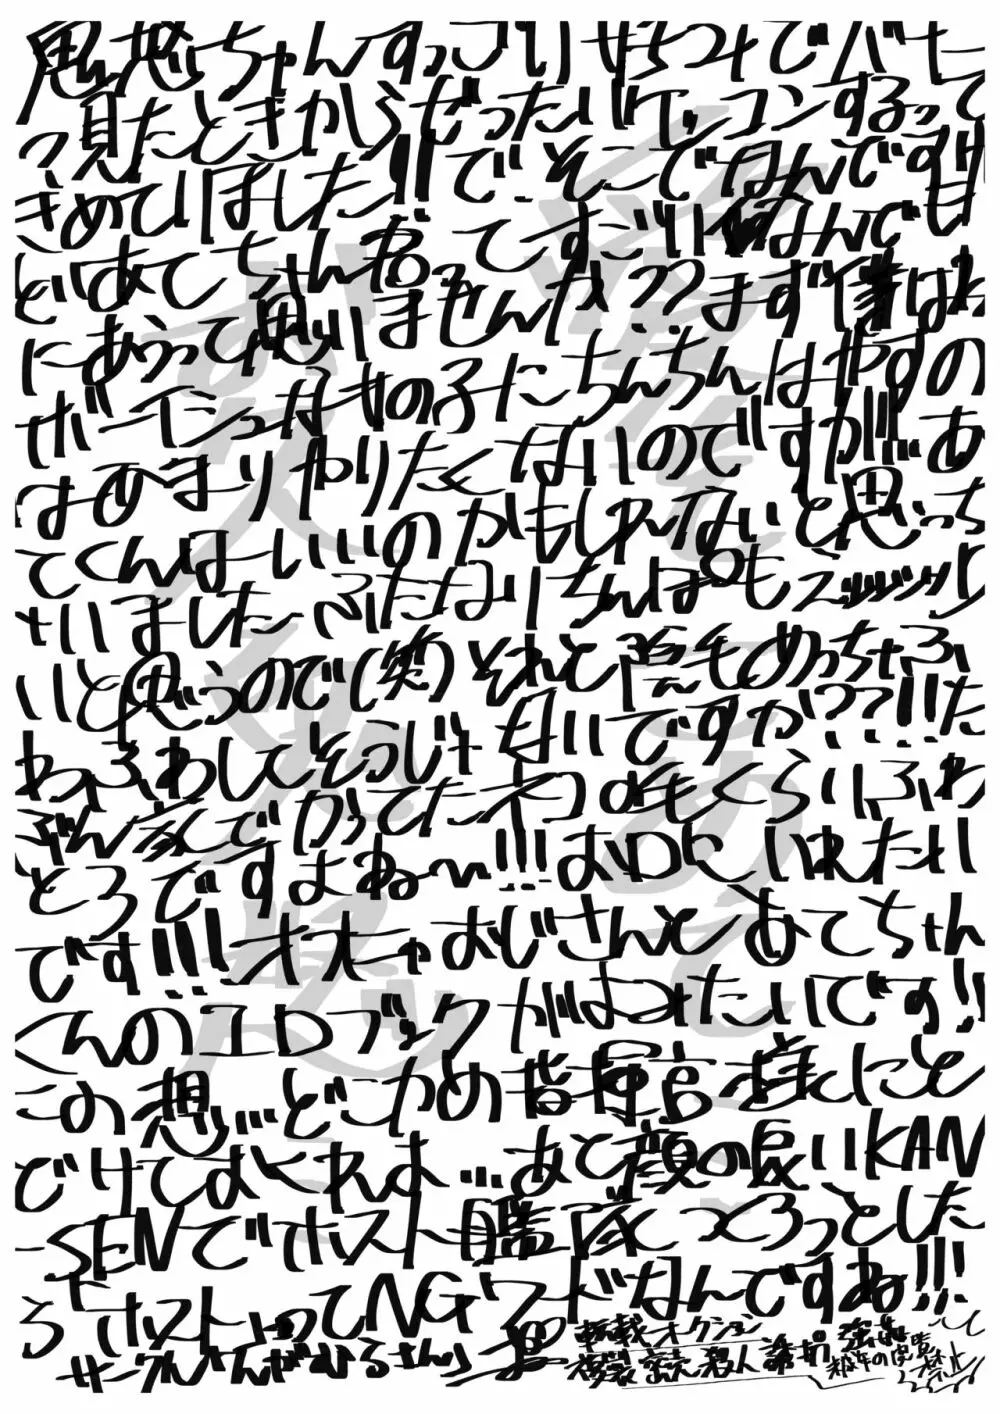 愚息ちゃんすっごいせちつみでバナー
っ見たときからぜったいケッコンするって
きめていました!!で、そこでなんですけ
どあてちゃん君ってすごい なんでも
にあうって思いませんか??まず僕はわ
ガーイシュな女の子にちんちんはやすの
はあまりやりたくないのですが!!!あ
てくんはいいのかもしれないと思っち
ゃいました~ふたなりちんぽもズッッッリ
いと思うので(笑)それと陰毛めっちゃふ
わふわしてそうじゃないですか!??!!た
ぶん家でかってたネコの毛くらいふわ
とろですよね~!!!おロにいれたい
です!!!オオチャおじさんとあてちゃん
くんのエロブックがはつれたいです!!
この想いどこかの指揮官様にと
どけておくれよ…あと顔の良いKAN
-SENでホスト艦隊つくろっとした
らホストってNGワードなんですね!!!
サークルさんがひるさんら
転載 オークション
複製 窃読 殺人 誘拐 強姦
禁止